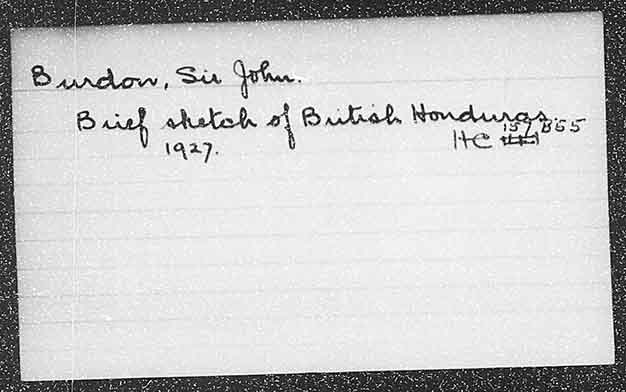 Burdon, Sir John.
Brief sketch of British Honduras.
1927. HC 157 B55